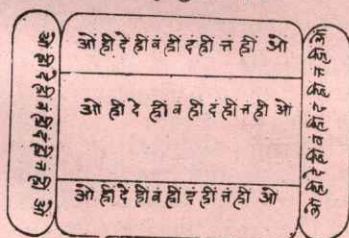 ओं ह्रीं दे ह्रीं वं ह्रीं दं ह्रीं त्तं ह्रीं ओं
ओ ह्रीं दे ह्रीं वं ह्रीं दं ह्रीं त्तं ह्रीं ओ
ओ ह्रीं दे ह्रीं वं ह्रीं दं ह्रीं त्तं ह्रीं ओ
ओं ह्रीं दे ह्रीं वं ह्रीं दं ह्रीं त्तं ह्रीं ओं
ओं ह्रीं दे ह्रीं वं ह्रीं दं ह्रीं त्तं ह्रीं ओं